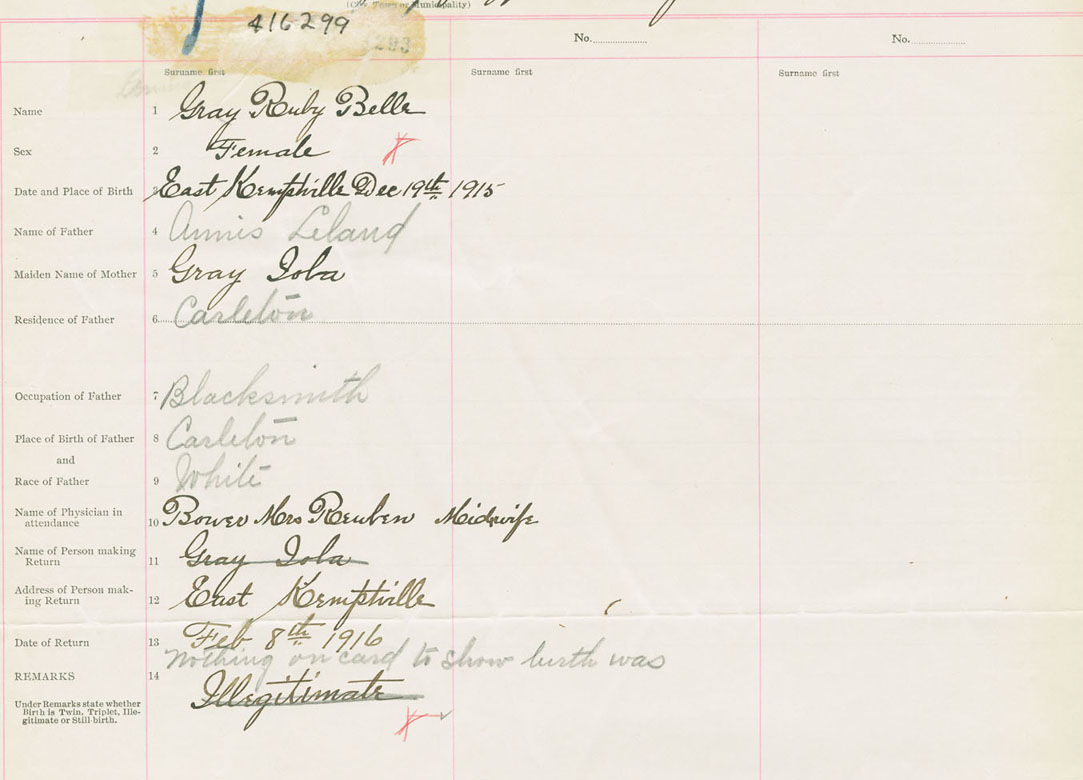 (City, Town or Municipality)
416299
293
No.
No.
Surname first
Surname first
Surname first
Name 1 Gray Ruby Belle
Sex 2 Female
Date and Place of Birth 3 East Kemptville Dec 19th 1915
Name of Father 4 Annis Leland
Maiden Name of Mother 5 Gray Iola
Residence of Father 6 Carleton
Occupation of Father 7 Blacksmith
Place of Birth of Father 8 Carleton
and
Race of Father 9 White
Name of Physician in
attendance 10 Bower Mrs Reuben Midwife
Name of Person making
Return 11 Gray Iola
Address of Person mak-
ing Return 12 East Kemptville
Date of Return 13 Feb 8th 1916
Nothing on card to show birth was
REMARKS 14 Illegitimate
Under Remarks state whether
Birth is Twin, Triplet, Ille-
gitimate or Still-birth.